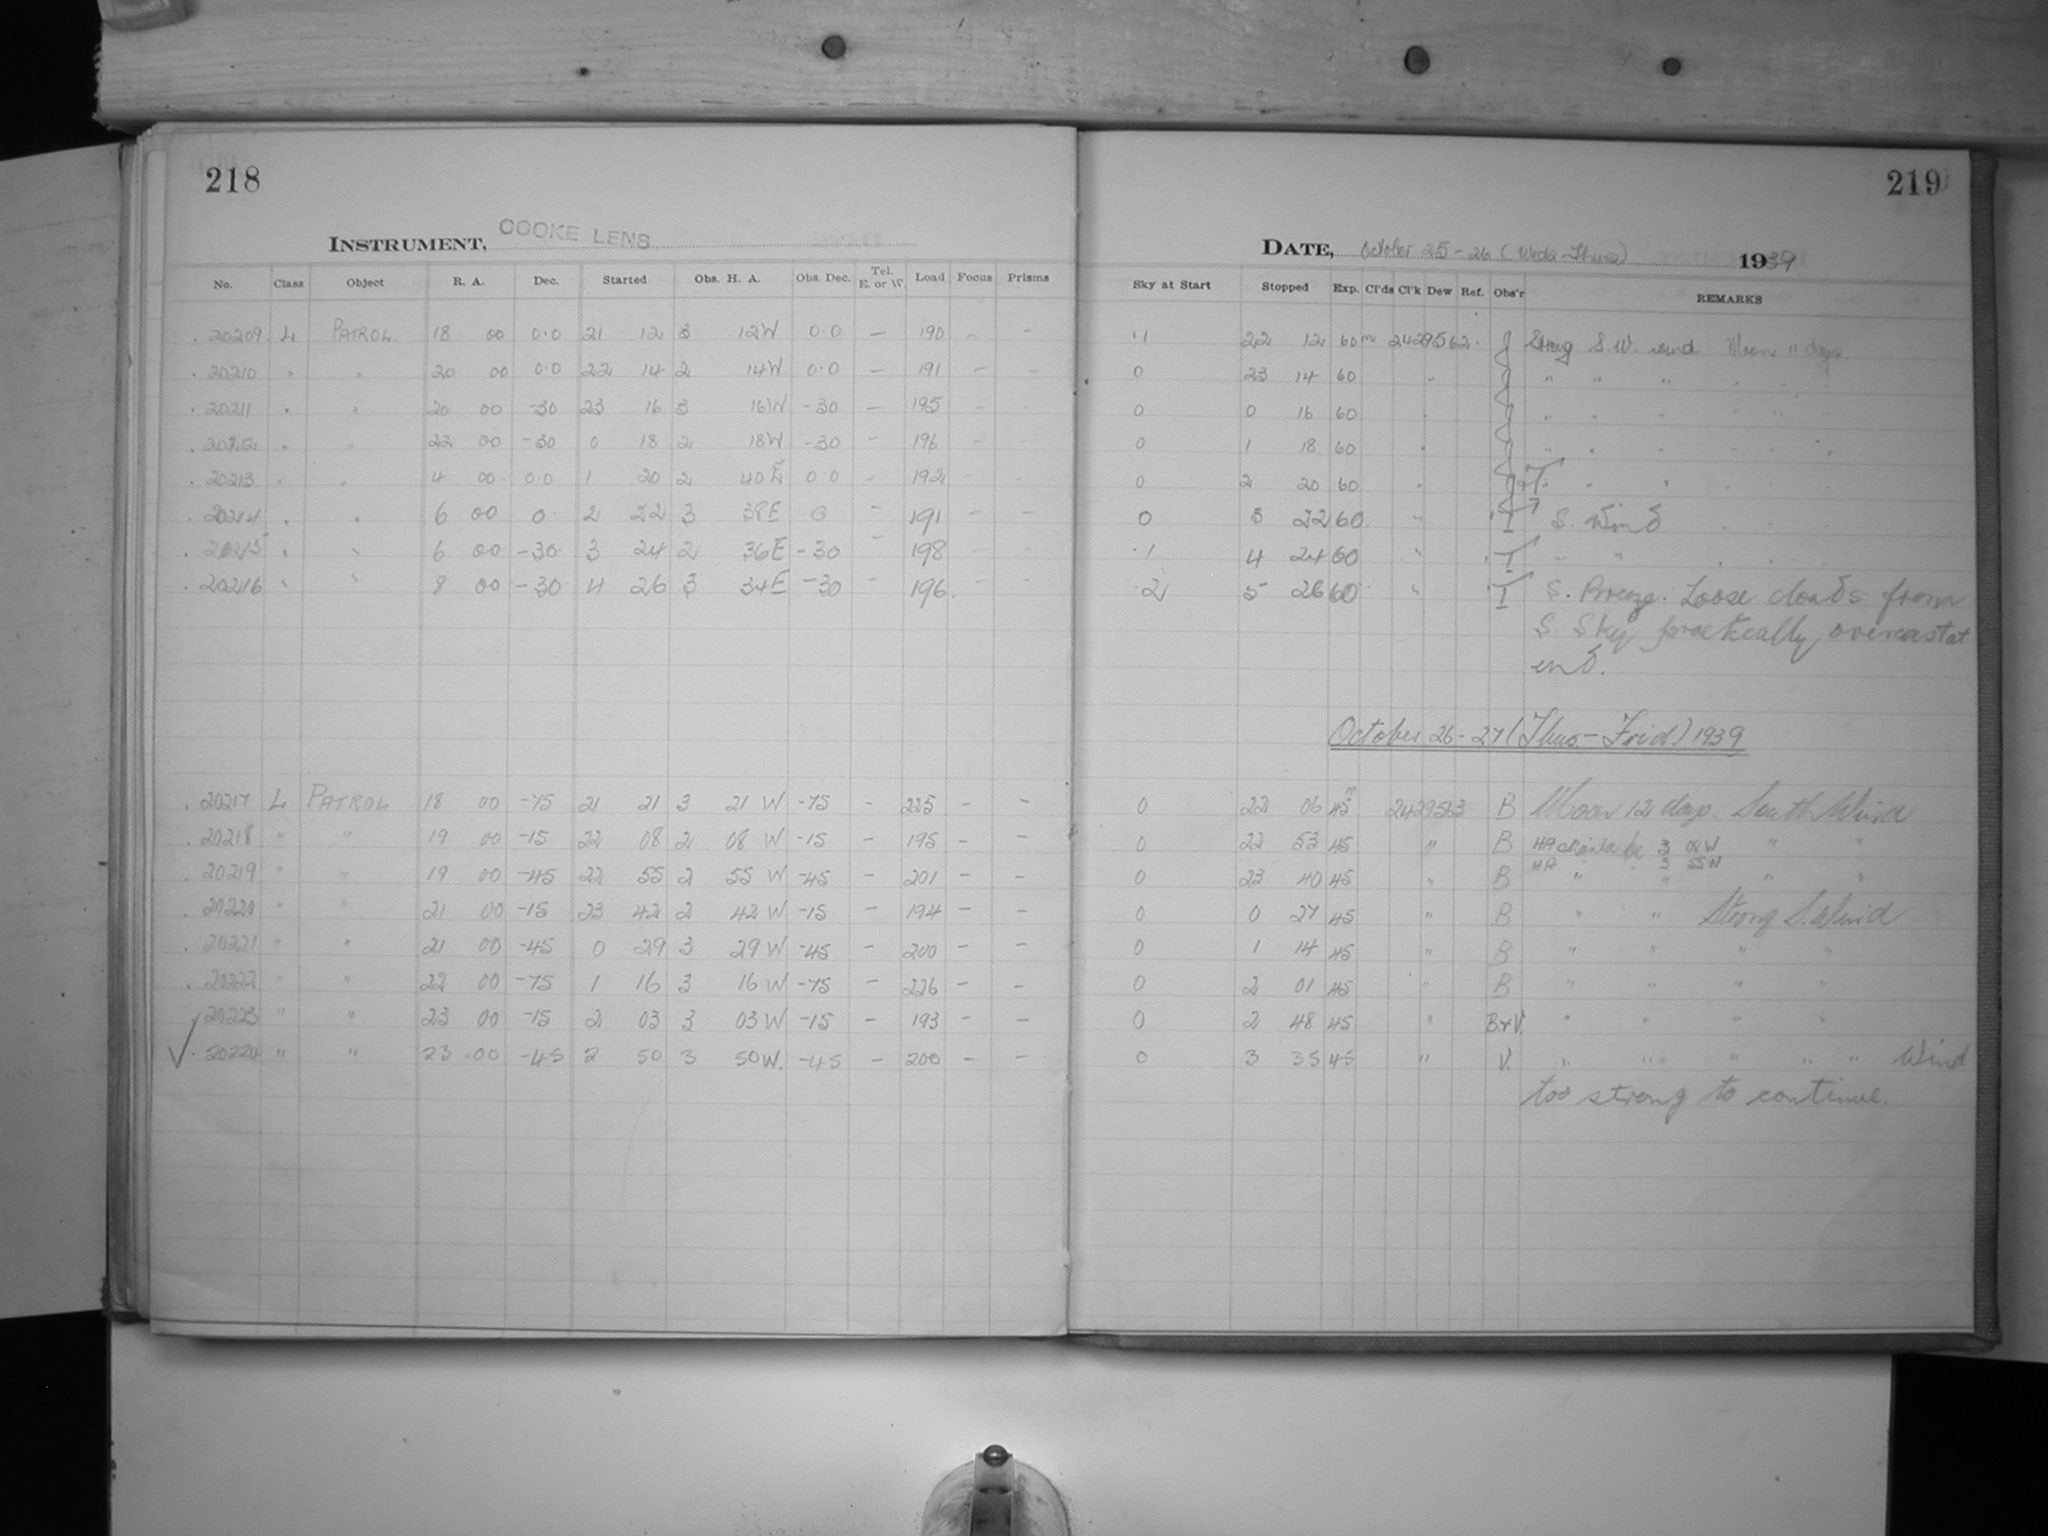 218
INSTRUMENT, COOKE LENS
No. Class Object R. A. Dec. Started Obs. H. A. Obs. Dec. Tel. E. or W. Load Focus Prisms
20209 L PATROL 18 00 0.0 21 12 3 12W 0.0 – 190 – –
20210 " " 20 00 0.0 22 14 2 14W 0.0 – 191 – –
20211 " " 20 00 -30 23 16 3 16W -30 – 195 – –
20212 " " 22 00 -30 0 18 2 18W -30 – 196 – –
20213 " " 4 00 0.0 1 20 2 40E 0 0 – 192 – –
20214 " " 6 00 0 2 22 3 38E 0 – 191 – –
20215 " " 6 00 -30 3 24 2 36E -30 – 198 – –
20216 " " 8 00 -30 4 26 3 34E -30 – 196 – –
20217 L PATROL 18 00 -75 21 21 3 21 W -75 – 225 – –
20218 " " 19 00 -15 22 08 2 08 W -15 – 195 – –
20219 " " 19 00 -45 22 55 2 55 W -45 – 201 – –
20220 " " 21 00 -15 23 42 2 42 W -15 – 194 – –
20221 " " 21 00 -45 0 29 3 29 W -45 – 200 – –
20222 " " 22 00 -75 1 16 3 16 W -75 – 226 – –
20223 " " 23 00 -15 2 03 3 03 W -15 – 193 – –
✓ 20224 " " 23 00 -45 2 50 3 50 W. -45 – 200 – –
219
DATE, October 25-26 (Weds-Thurs) 1939
Sky at Start Stopped Exp. Cl'ds Cl'k Dew Ref. Obs'r REMARKS
22 12 60m 2429562 J Strong S.W. wind Moon 11 days.
0 23 14 60 " J " " " "
0 0 16 60 " J " " " "
0 1 18 60 " J " " " "
0 2 20 60 " J+T. " " "
0 3 22 60 " T S. Wind
.1 4 24 60 " T " "
.2 5 26 60 " T S. Breeze. Loose clouds from
S. Sky practically overcast at
end.
October 26-27 (Thur.-Frid.) 1939
0 22 06 45m 2429563 B Moon 12 days. South Wind
0 22 53 45 " B HA should be 3 08 W " "
0 23 40 45 " B HA " " 3 55 W " "
0 0 27 45 " B " " Strong S. Wind
0 1 14 45 " B " " " "
0 2 01 45 " B " " " "
0 2 48 45 " B+V. " " " "
0 3 35 45 " V. " " " " " Wind
too strong to continue.